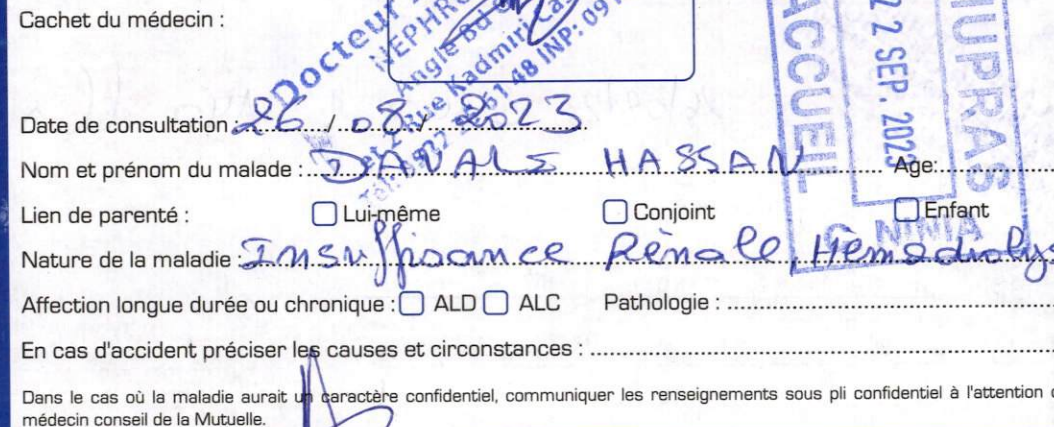 Cachet du médecin :
Docteur
NÉPHRO
Angle Bd
et 2 Rue Kadmiri Cas
INP: 091
MUPRAS
2 SEP. 2023
ACCUEIL
Date de consultation : 26 / 08 / 2023
Nom et prénom du malade : HASSAN Age:
Lien de parenté : Lui-même Conjoint Enfant
Nature de la maladie : Insuffisance Rénale, Hémodialys
Affection longue durée ou chronique : ALD ALC Pathologie :
En cas d'accident préciser les causes et circonstances :
Dans le cas où la maladie aurait un caractère confidentiel, communiquer les renseignements sous pli confidentiel à l'attention
médecin conseil de la Mutuelle.